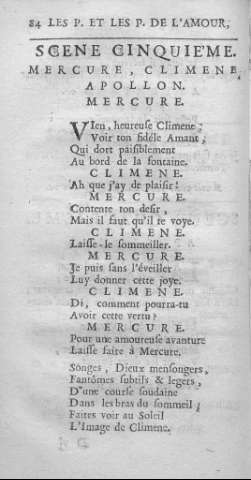 84 LES P. ET LES P. DE L'AMOUR,
SCENE CINQUIEME.
MERCURE, CLIMENE,
APOLLON.
MERCURE.
VIen, heureuse Climene;
Voir ton fidéle Amant,
Qui dort paisiblement
Au bord de la fontaine.
CLIMENE.
Ah que j'ay de plaisir!
MERCURE.
Contente ton desir,
Mais il faut qu'il te voye.
CLIMENE.
Laisse-le sommeiller.
MERCURE.
Je puis sans l'éveiller
Luy donner cette joye.
CLIMENE.
Di, comment pourra-tu
Avoir cette vertu?
MERCURE.
Pour une amoureuse avanture
Laisse faire à Mercure.
Songes, Dieux mensongers,
Fantômes subtils & legers,
D'une course soudaine
Dans les bras du sommeil;
Faites voir au Soleil
L'Image de Climene.